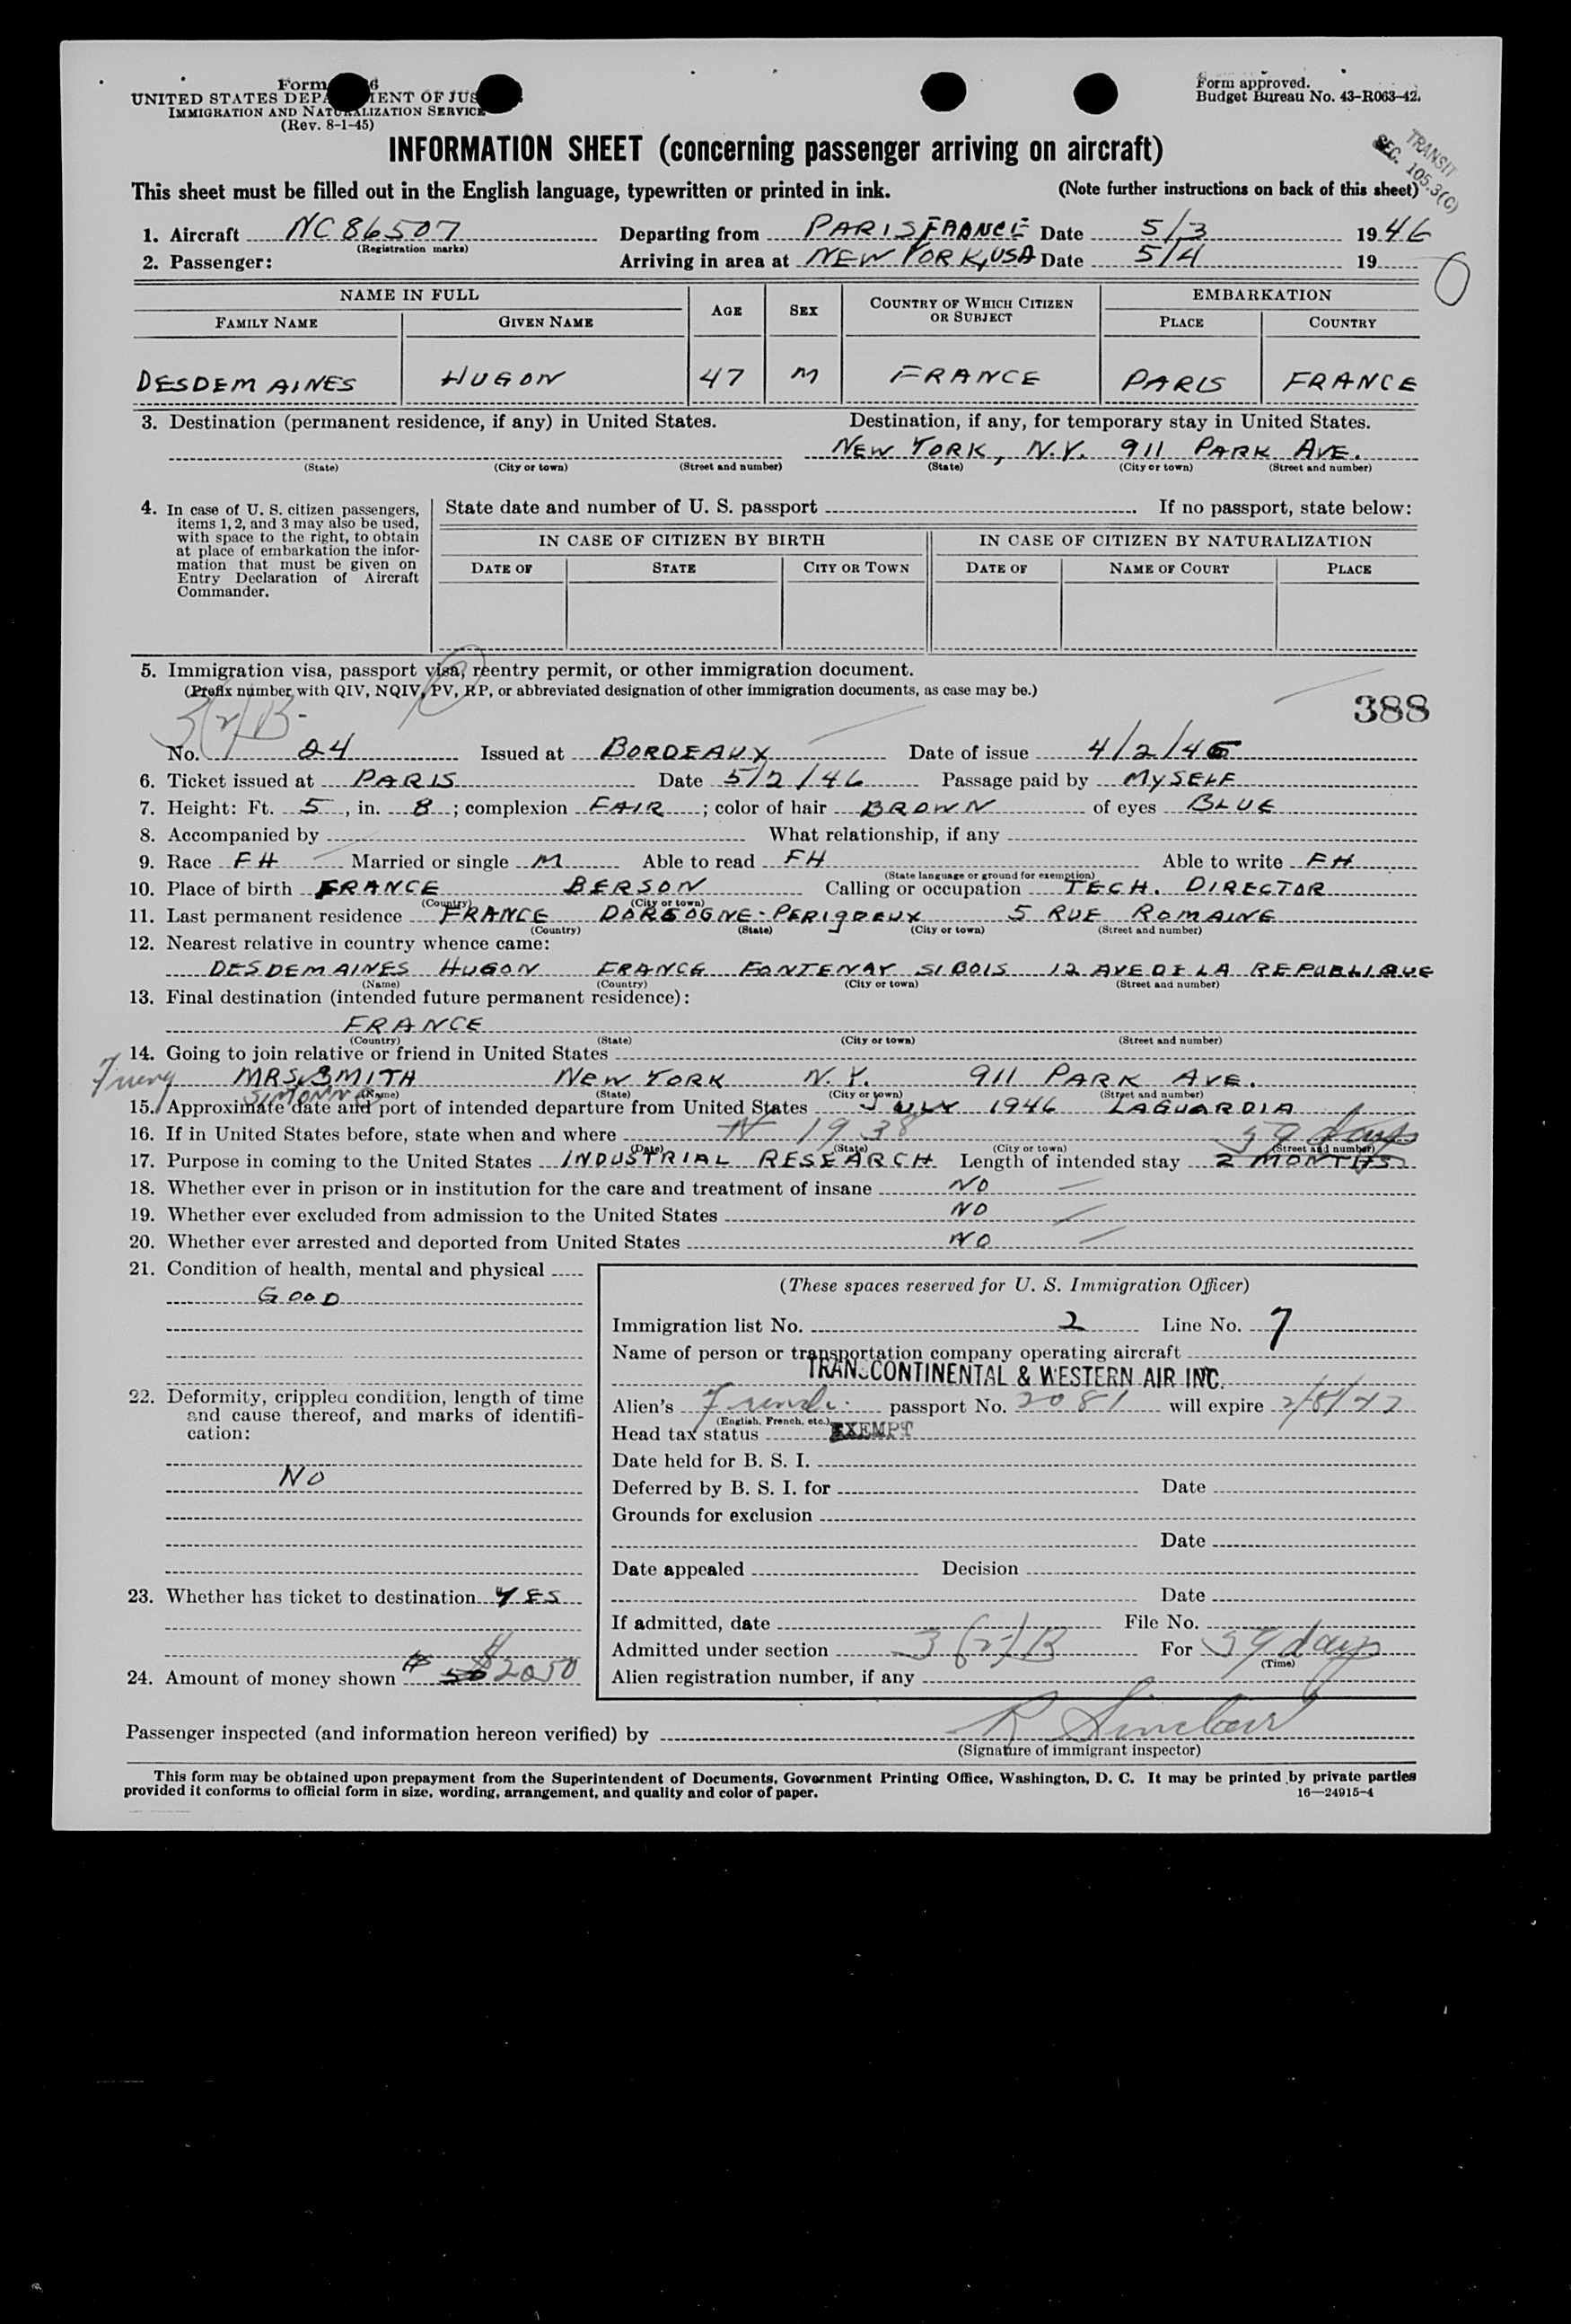 Form 6
Form approved.
UNITED STATES DEPA IENT OF JUS
Budget Bureau No. 43-R063-42.
IMMIGRATION AND NATURALIZATION SERVICE
(Rev. 8-1-45)
TRANSIT
SEC. 105.3(C)
INFORMATION SHEET (concerning passenger arriving on aircraft)
This sheet must be filled out in the English language, typewritten or printed in ink. (Note further instructions on back of this sheet)
1. Aircraft NC 86507 Departing from PARIS FRANCE Date 5/3 1946
(Registration marks)
2. Passenger: Arriving in area at NEW YORK, USA Date 5/4 19
NAME IN FULL AGE SEX COUNTRY OF WHICH CITIZEN OR SUBJECT EMBARKATION
FAMILY NAME GIVEN NAME PLACE COUNTRY
DESDEMAINES HUGON 47 M FRANCE PARIS FRANCE
3. Destination (permanent residence, if any) in United States. Destination, if any, for temporary stay in United States.
NEW YORK, N.Y. 911 PARK AVE.
(State) (City or town) (Street and number) (State) (City or town) (Street and number)
4. In case of U. S. citizen passengers, items 1, 2, and 3 may also be used, with space to the right, to obtain at place of embarkation the information that must be given on Entry Declaration of Aircraft Commander.
State date and number of U. S. passport If no passport, state below:
IN CASE OF CITIZEN BY BIRTH IN CASE OF CITIZEN BY NATURALIZATION
DATE OF STATE CITY OR TOWN DATE OF NAME OF COURT PLACE
5. Immigration visa, passport visa, reentry permit, or other immigration document.
(Prefix number with QIV, NQIV, PV, RP, or abbreviated designation of other immigration documents, as case may be.)
388
3(2)B
No. 24 Issued at BORDEAUX Date of issue 4/2/46
6. Ticket issued at PARIS Date 5/2/46 Passage paid by MYSELF
7. Height: Ft. 5, in. 8; complexion FAIR; color of hair BROWN of eyes BLUE
8. Accompanied by What relationship, if any
9. Race FH Married or single M Able to read FH Able to write FH
(State language or ground for exemption)
10. Place of birth FRANCE BERSON Calling or occupation TECH. DIRECTOR
(Country) (City or town)
11. Last permanent residence FRANCE DORDOGNE - PERIGUEUX 5 RUE ROMAINE
(Country) (State) (City or town) (Street and number)
12. Nearest relative in country whence came:
DESDEMAINES HUGON FRANCE FONTENAY S/BOIS 12 AVE DE LA REPUBLIQUE
(Name) (Country) (City or town) (Street and number)
13. Final destination (intended future permanent residence):
FRANCE
(Country) (State) (City or town) (Street and number)
14. Going to join relative or friend in United States
MRS. SMITH NEW YORK N.Y. 911 PARK AVE.
SIMONNE
(Name) (State) (City or town) (Street and number)
15. Approximate date and port of intended departure from United States JULY 1946 LAGUARDIA
16. If in United States before, state when and where 1938 59 days
(Date) (State) (City or town) (Street and number)
17. Purpose in coming to the United States INDUSTRIAL RESEARCH Length of intended stay 2 MONTHS
18. Whether ever in prison or in institution for the care and treatment of insane NO
19. Whether ever excluded from admission to the United States NO
20. Whether ever arrested and deported from United States NO
21. Condition of health, mental and physical
GOOD
(These spaces reserved for U. S. Immigration Officer)
Immigration list No. 2 Line No. 7
Name of person or transportation company operating aircraft
TRANSCONTINENTAL & WESTERN AIR INC.
22. Deformity, crippled condition, length of time and cause thereof, and marks of identification:
NO
Alien's French passport No. 2081 will expire 2/8/47
(English, French, etc.)
Head tax status EXEMPT
Date held for B. S. I.
Deferred by B. S. I. for Date
Grounds for exclusion
Date
Date appealed Decision
23. Whether has ticket to destination YES
Date
If admitted, date File No.
Admitted under section 3(2)B For 59 days
(Time)
24. Amount of money shown $ 50 $2050
Alien registration number, if any
Passenger inspected (and information hereon verified) by R Sinclair
(Signature of immigrant inspector)
This form may be obtained upon prepayment from the Superintendent of Documents, Government Printing Office, Washington, D. C. It may be printed by private parties
provided it conforms to official form in size, wording, arrangement, and quality and color of paper. 16—24915-4